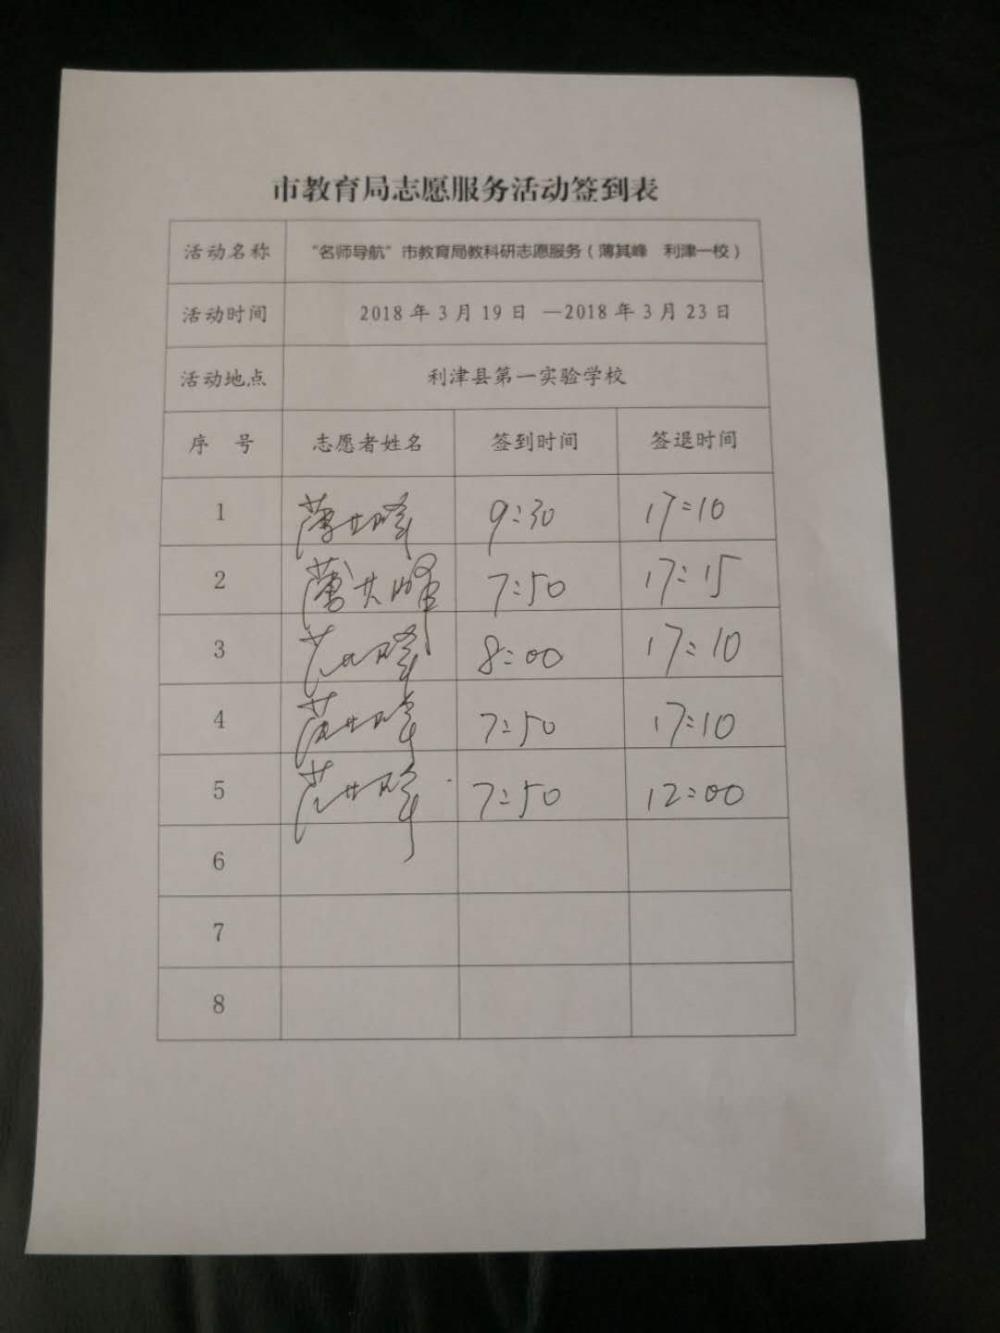 市教育局志愿服务活动签到表
活动名称 “名师导航”市教育局教科研志愿服务（薄其峰 利津一校）
活动时间 2018 年 3 月 19 日 —2018 年 3 月 23 日
活动地点 利津县第一实验学校
序 号 志愿者姓名 签到时间 签退时间
1 薄其峰 9:30 17:10
2 薄其峰 7:50 17:15
3 薄其峰 8:00 17:10
4 薄其峰 7:50 17:10
5 薄其峰 7:50 12:00
6
7
8